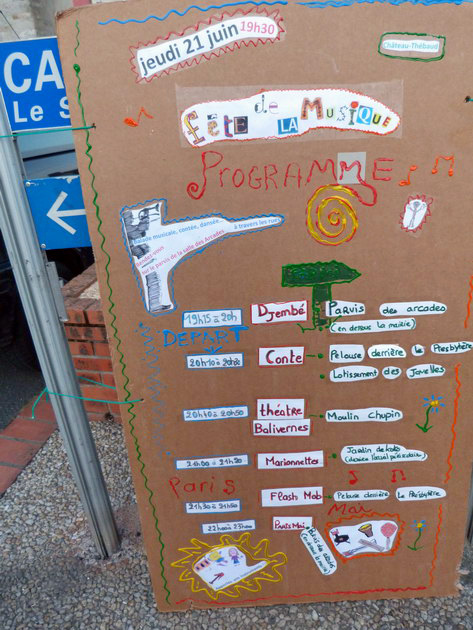 CA
Le S
jeudi 21 juin 19h30
Château-Thébaud
fête de LA MUSIQUE
PROGRAMME
Balade musicale, contée, dansée... à travers les rues
Rendez-vous
sur le parvis de la salle des Arcades
19h15 à 20h Djembé Parvis des arcades
(en dessous la mairie)
DEPART
20h10 à Conte Pelouse derrière le Presbytère
Lotissement des Javelles
20h40 à 20h50 théatre Moulin Chupin
Balivernes
21h00 à Marionnettes Jardin de
Paris
21h30 à 21h50 Flash Mob Pelouse derrière Le Presbytère
Mai
22h00 à 23h00 Paris Mai